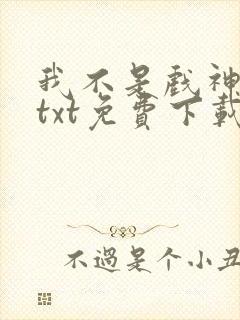 我不是戲神
txt免費下載
不過是个小丑